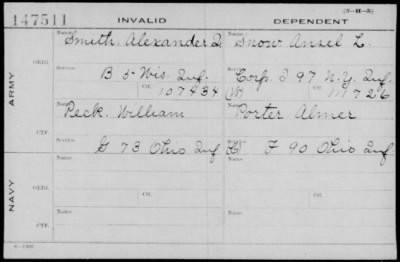 147511 INVALID (3-H-5) DEPENDENT
Name Name
Smith, Alexander Q. Snow Ansel L.
ORIG.
Service Service
B 5 Wis. Inf. Corp. I 97 N.Y. Inf.
Ctf. Ctf.
107434 (W) 111726
ARMY
Name Name
Peck, William Porter Almer
CTF.
Service Service
G 73 Ohio Inf F 90 Ohio Inf
Name Name
ORIG.
Ctf. Ctf.
NAVY
Name Name
CTF.